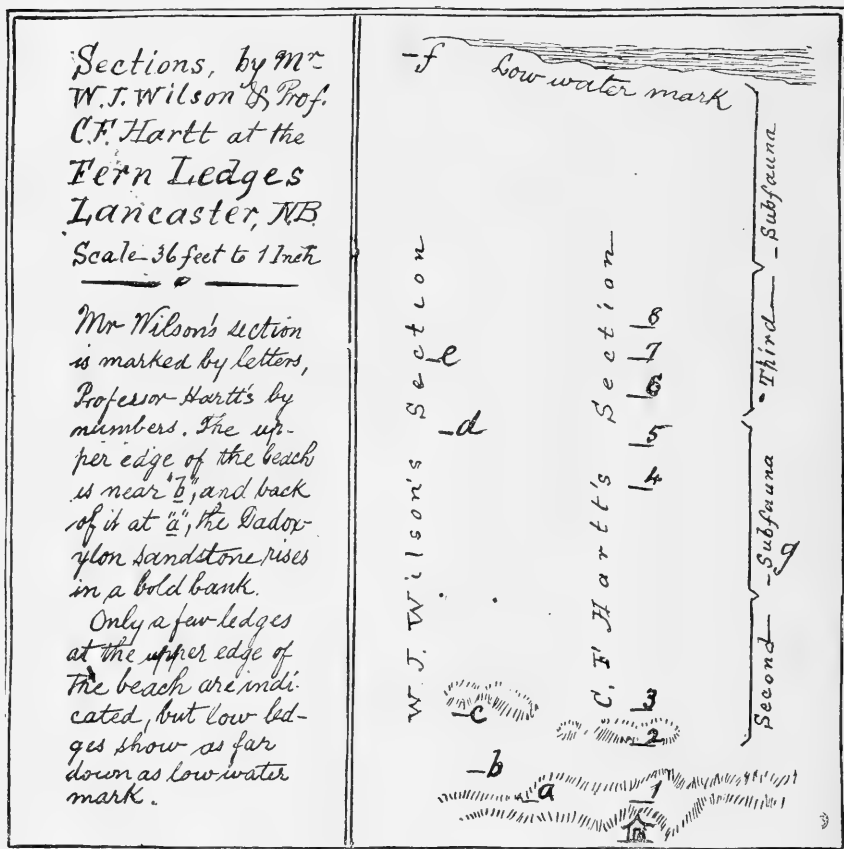 Sections, by Mr
W.J. Wilson & Prof.
C.F. Hartt at the
Fern Ledges
Lancaster, N.B.
Scale 36 feet to 1 Inch
Mr Wilson's section
is marked by letters,
Professor Hartt's by
numbers. The up-
per edge of the beach
is near "b", and back
of it at "a", the Dadox-
ylon sandstone rises
in a bold bank.
Only a few ledges
at the upper edge of
the beach are indi-
cated, but low led-
ges show as far
down as low water
mark.
f
Low water mark
W. J. Wilson's Section
e
d
c
b
a
C. F Hartt's Section
8
7
6
5
4
3
2
1
Third - Subfauna
Second - Subfauna
g